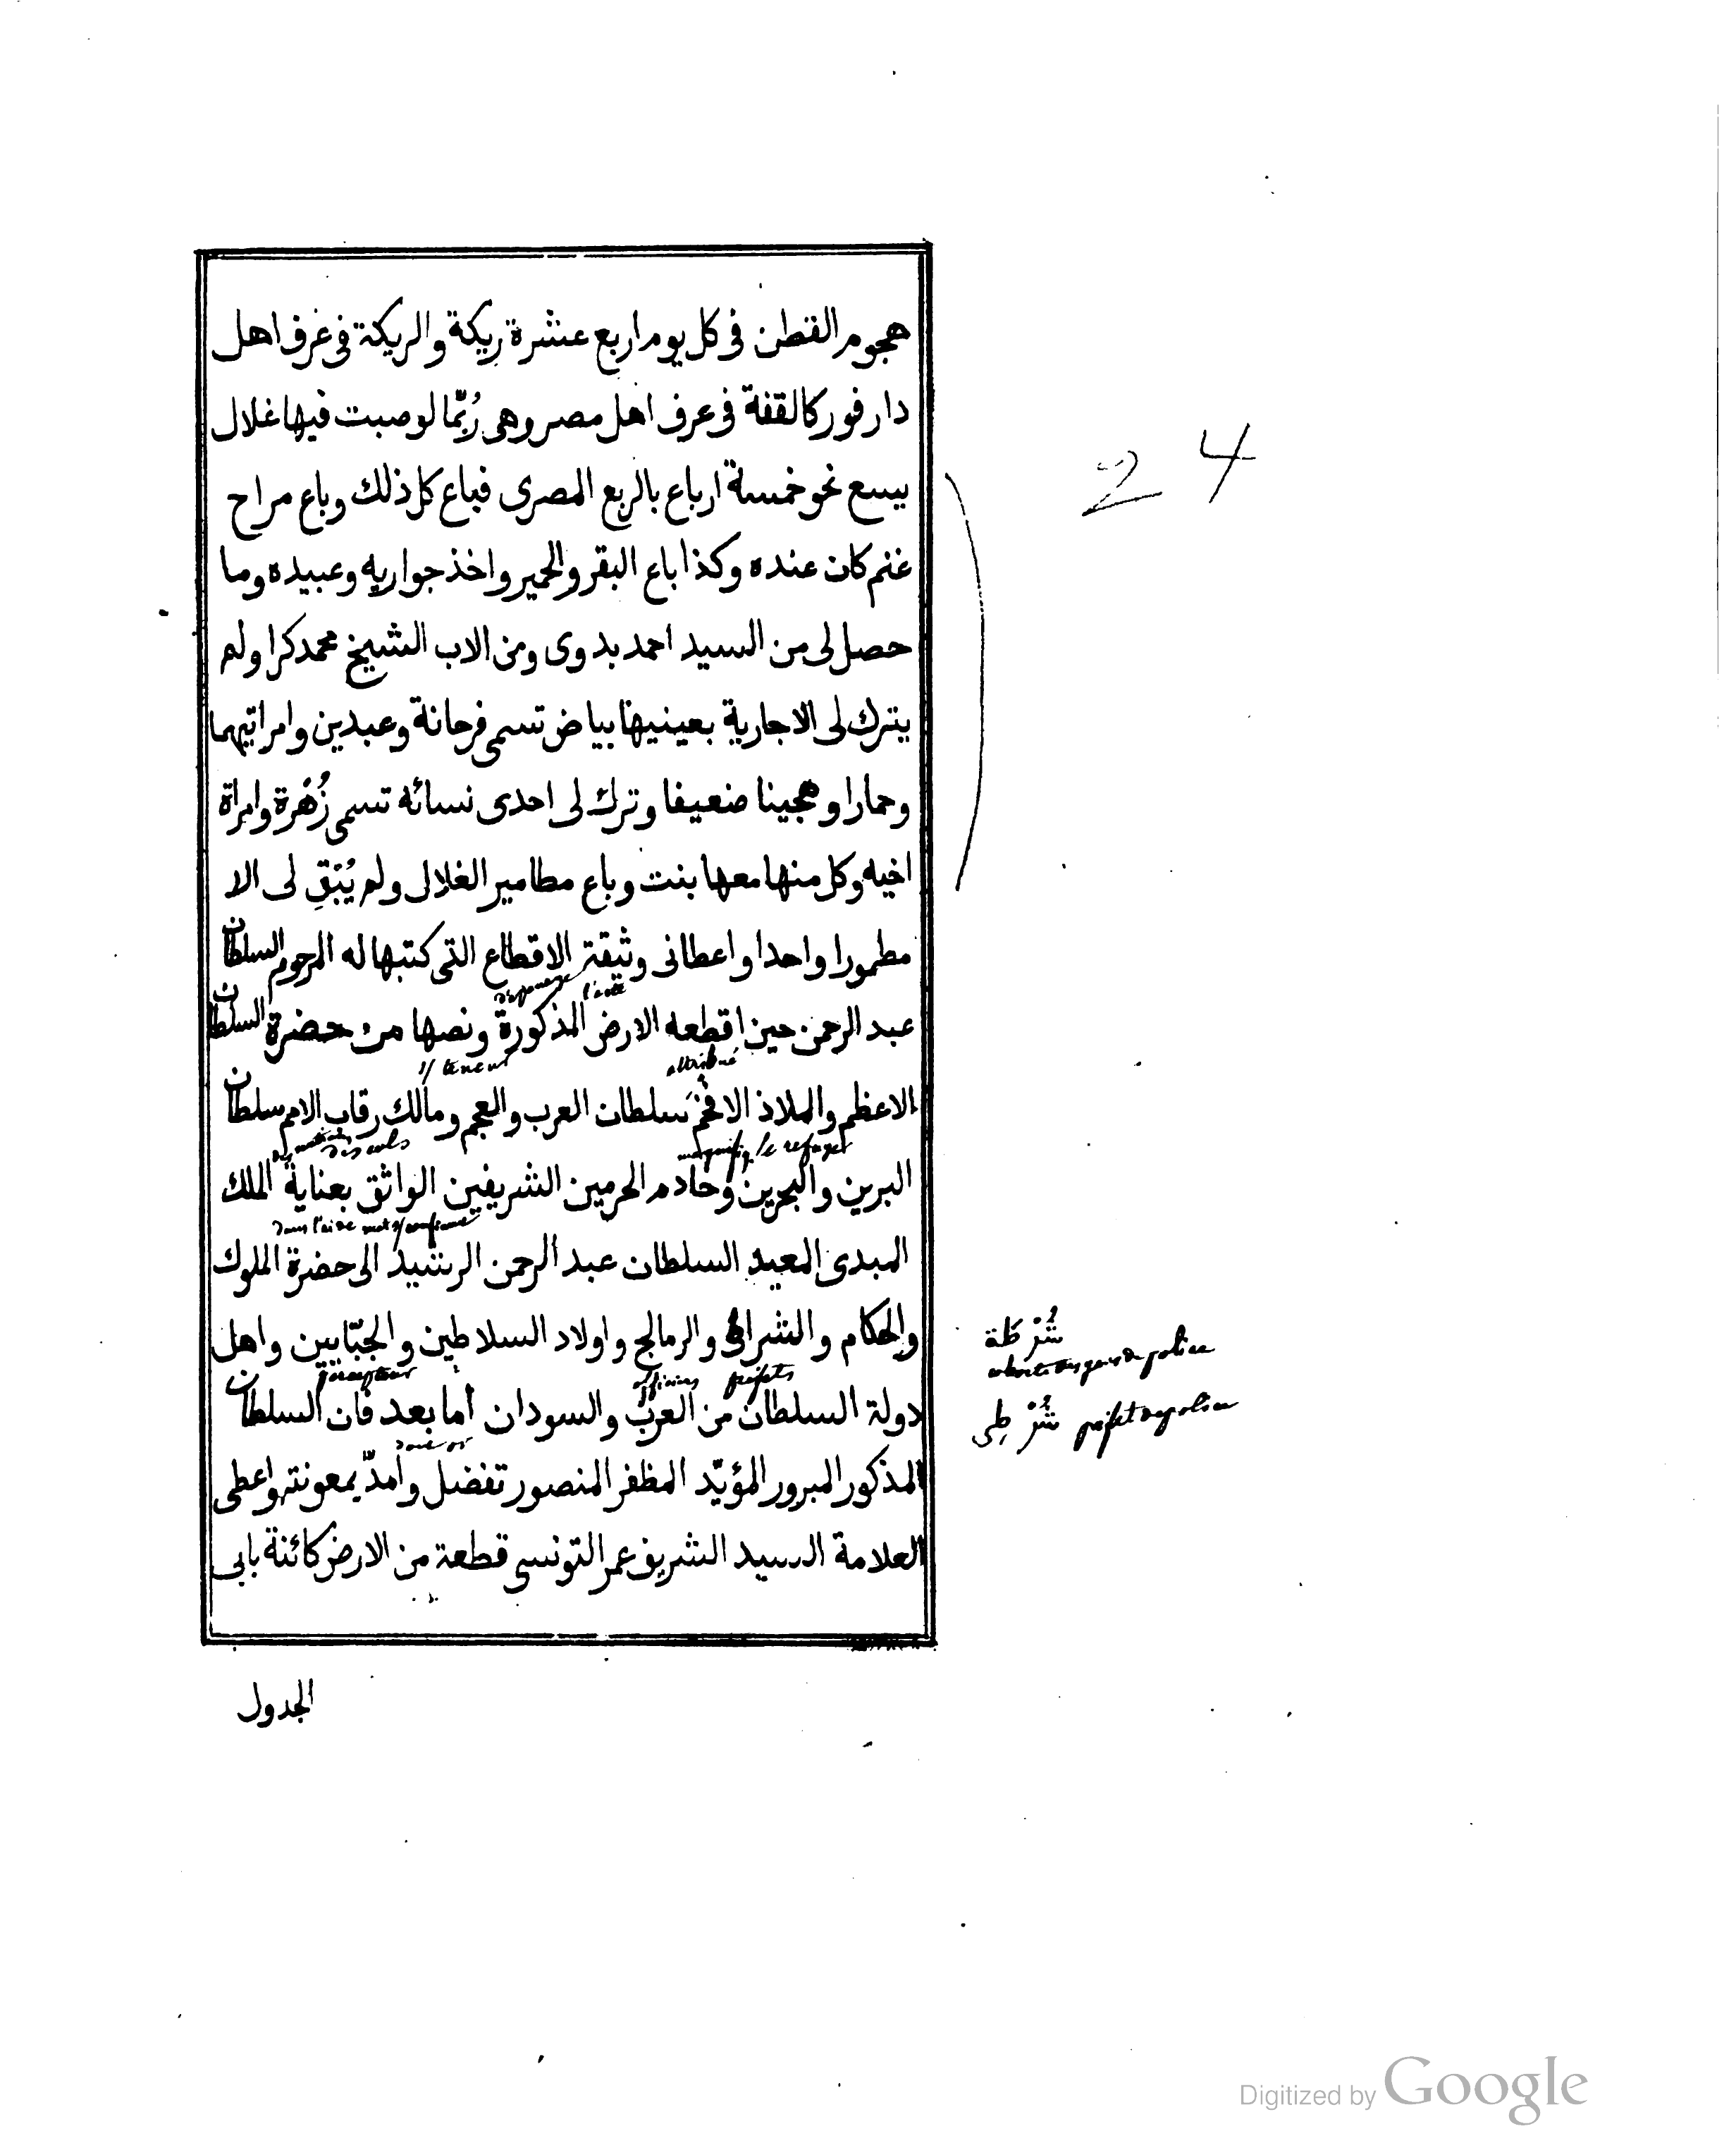 هجوم القطن فى كل يوم اربع عشرة ريكة والريكة فى عرف اهل
دار فور كالقفة فى عرف اهل مصر وهى رُبّما لو صبت فيها غلال
يسع نحو خمسة ارباع بالربع المصرى فباع كل ذلك وباع مراح
غنم كان عنده وكذا باع البقر والحمير واخذ جواريه وعبيده وما
حصل لى من السيد احمد بدوى ومن الاب الشيخ محمد كرا ولم
يترك لى الا جارية بعينيها بياض تسمى فرحانة وعبدين وامراتيهما
وحمارا وهجينا ضعيفا وترك لى احدى نسائه تسمى زُهْرة وامراة
اخيه وكل منها معها بنت وباع مطامير الغلال ولم يُبْقِ لى الا
مطمورا واحدا واعطانى وثيقة الاقطاع التى كتبها له المرحوم السلطان
عبد الرحمن حين اقطعه الارض المذكورة ونصها من حضرة السلطان
attribué
teneur
الاعظم والملاذ الافخم سلطان العرب والعجم ومالك رقاب الامم سلطان
le refuge
des cols
البرين والبحرين وخادم الحرمين الشريفين الواثق بعناية الملك
المبدى المعيد السلطان عبد الرحمن الرشيد الى حضرة الملوك
والحكام والشراتى والرمالج واولاد السلاطين والجبّابين واهل
officiers préfets
دولة السلطان من العرب والسودان أما بعد فان السلطان
المذكور المبرور المؤيّد المظفر المنصور تفضل وامدّ بمعونته واعطى
العلامة السيد الشريف عمر التونسى قطعة من الارض كائنة بابى
الجدول
24
شُرْطَة
شُرْطِى préfet de police
Digitized by Google